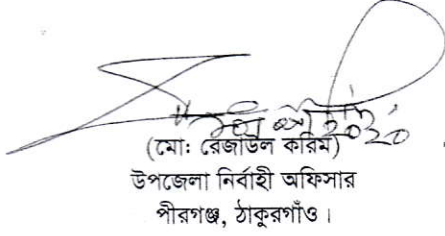 (মো: রেজাউল করিম)
উপজেলা নির্বাহী অফিসার
পীরগঞ্জ, ঠাকুরগাঁও।